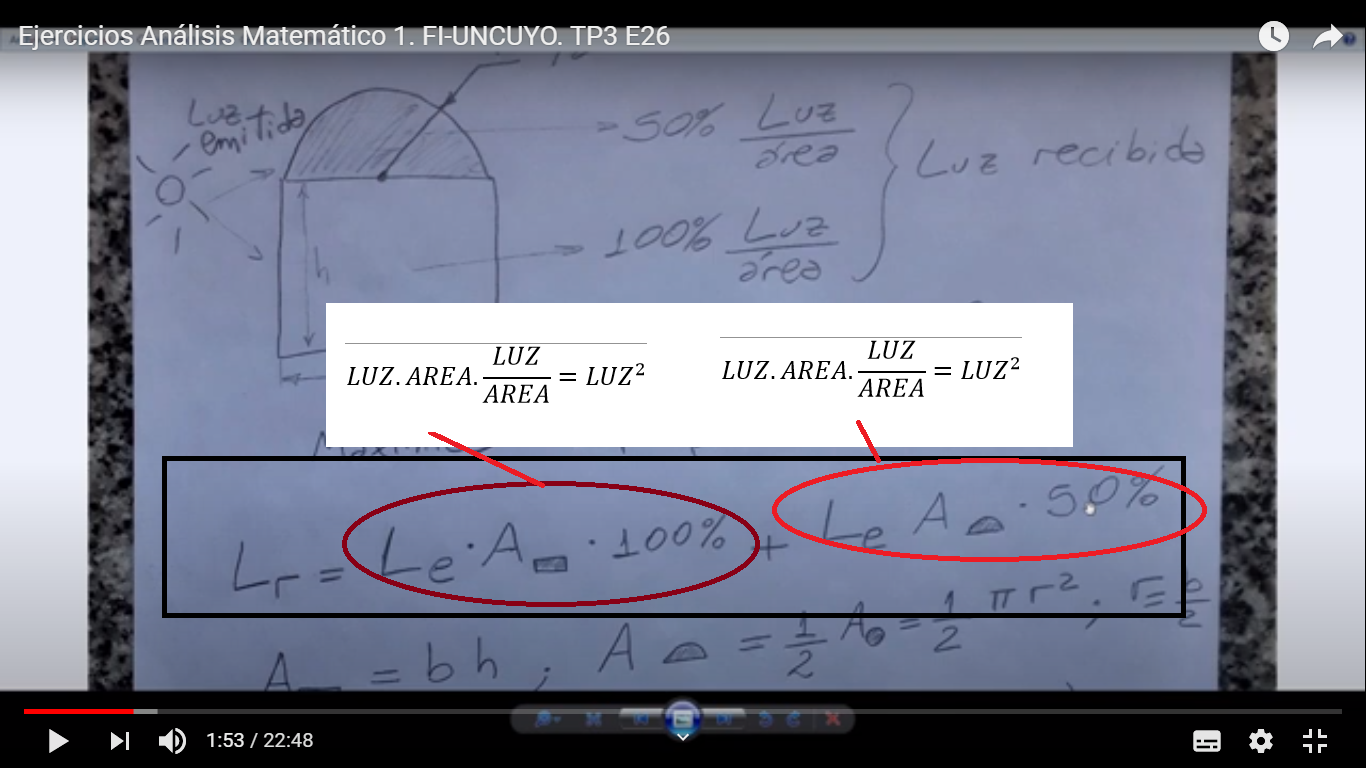 Ejercicios Análisis Matemático 1. FI-UNCUYO. TP3 E26
Luz
emitida
50% Luz
área
Luz recibida
100% Luz
área
h
LUZ.AREA.LUZ/AREA = LUZ²
LUZ.AREA.LUZ/AREA = LUZ²
Lr = Le · A▭ · 100% + Le A⌓ · 50%
A▭ = bh ; A⌓ = 1/2 A○ = 1/2 πr² ; r = b/2
1:53 / 22:48